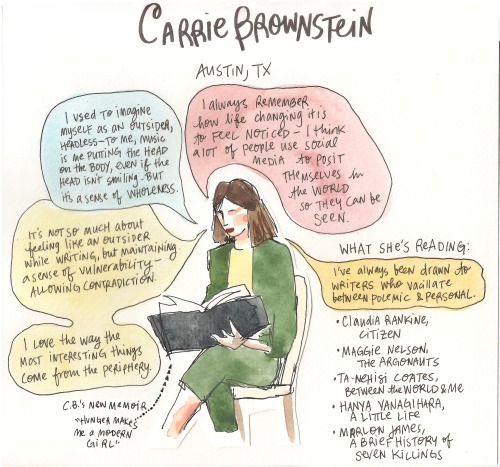 CARRIE BROWNSTEIN
AUSTIN, TX
I USED TO IMAGINE
MYSELF AS AN OUTSIDER,
HEADLESS-TO ME, MUSIC
IS ME PUTTING THE HEAD
ON THE BODY, EVEN IF THE
HEAD ISN'T SMILING-BUT
IT'S A SENSE OF WHOLENESS.
I ALWAYS REMEMBER
HOW LIFE CHANGING IT IS
TO FEEL NOTICED - I THINK
A LOT OF PEOPLE USE SOCIAL
MEDIA TO POSIT
THEMSELVES IN
THE WORLD
SO THEY CAN BE
SEEN.
IT'S NOT SO MUCH ABOUT
FEELING LIKE AN OUTSIDER
WHILE WRITING, BUT MAINTAINING
A SENSE OF VULNERABILITY-
ALLOWING CONTRADICTION.
I LOVE THE WAY THE
MOST INTERESTING THINGS
COME FROM THE PERIPHERY.
C.B.'S NEW MEMOIR
"HUNGER MAKES
ME A MODERN
GIRL"
WHAT SHE'S READING:
I'VE ALWAYS BEEN DRAWN TO
WRITERS WHO VACILLATE
BETWEEN POLEMIC & PERSONAL.
• CLAUDIA RANKINE,
CITIZEN
• MAGGIE NELSON,
THE ARGONAUTS
• TA-NEHISI COATES,
BETWEEN THE WORLD & ME
• HANYA YANAGIHARA,
A LITTLE LIFE
• MARLON JAMES,
A BRIEF HISTORY OF
SEVEN KILLINGS